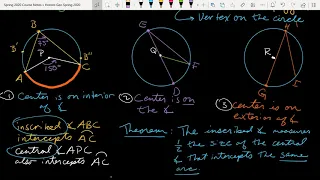 Vertex on the circle
B
B'
B"
75°
150°
A
C
E
Q
F
D
R
I
G
① Center is on interior of ∡
② Center is on the ∡
③ Center is on exterior of ∡
inscribed ∡ABC
intercepts AC
central ∡APC
also intercepts AC
Theorem: The inscribed ∡ measures
½ the size of the central
∡ that intercepts the same
arc.